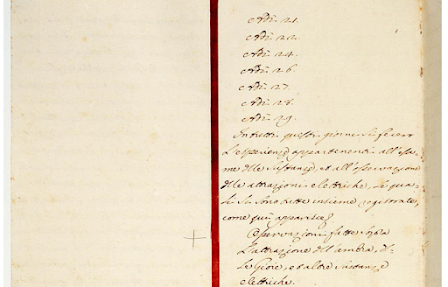 Adi 21.
Adi 22.
Adi 24.
Adi 26.
Adi 27.
Adi 28.
Adi 29.
In tutti questi giorni si fecero
l'esperienze appartenenti all'esa-
me delle sustanze, et all'osservazione
delle attrazioni elettriche, le qua-
li si sono tutte insieme registrate,
come qui apparisce.
Osservazioni fatte sopra
l'attrazione dell'ambra, del-
le Gioie, et altre sustanze
elettriche.